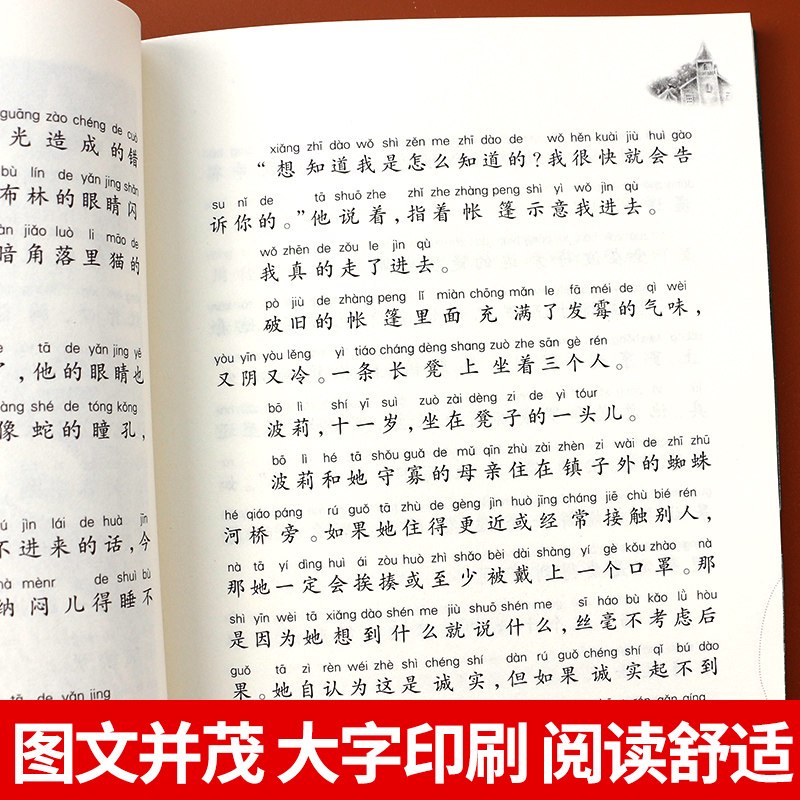 guāng zào chéng de cuò
光造成的错
bù lín de yǎn jing shǎn
布林的眼睛闪
àn jiǎo luò li māo de
暗角落里猫的
le tā de yǎn jing yě
了,他的眼睛也
xiàng shé de tóng kǒng
像蛇的瞳孔,
bú jìn lái de huà jīn
不进来的话,今
nà mènr de shuì bù
纳闷儿得睡不
tā de yǎn jing
xiǎng zhī dào wǒ shì zěn me zhī dào de wǒ hěn kuài jiù huì gào
“想知道我是怎么知道的?我很快就会告
su nǐ de tā shuō zhe zhǐ zhe zhàng peng shì yì wǒ jìn qù
诉你的。”他说着,指着帐篷示意我进去。
wǒ zhēn de zǒu le jìn qù
我真的走了进去。
pò jiù de zhàng peng lǐ miàn chōng mǎn le fā méi de qì wèi
破旧的帐篷里面充满了发霉的气味,
yòu yīn yòu lěng yì tiáo cháng dèng shang zuò zhe sān gè rén
又阴又冷。一条长凳上坐着三个人。
bō lì shí yī suì zuò zài dèng zi de yì tóur
波莉,十一岁,坐在凳子的一头儿。
bō lì hé tā shǒu guǎ de mǔ qīn zhù zài zhèn zi wài de zhī zhū
波莉和她守寡的母亲住在镇子外的蜘蛛
hé qiáo páng rú guǒ tā zhù de gèng jìn huò jīng cháng jiē chù bié rén
河桥旁。如果她住得更近或经常接触别人,
nà tā yí dìng huì ái zòu huò zhì shǎo bèi dài shàng yí gè kǒu zhào nà
那她一定会挨揍或至少被戴上一个口罩。那
shì yīn wèi tā xiǎng dào shén me jiù shuō shén me sī háo bù kǎo lǜ hòu
是因为她想到什么就说什么,丝毫不考虑后
guǒ tā zì rèn wéi zhè shì chéng shí dàn rú guǒ chéng shí qǐ bú dào
果。她自认为这是诚实,但如果诚实起不到
图文并茂 大字印刷 阅读舒适